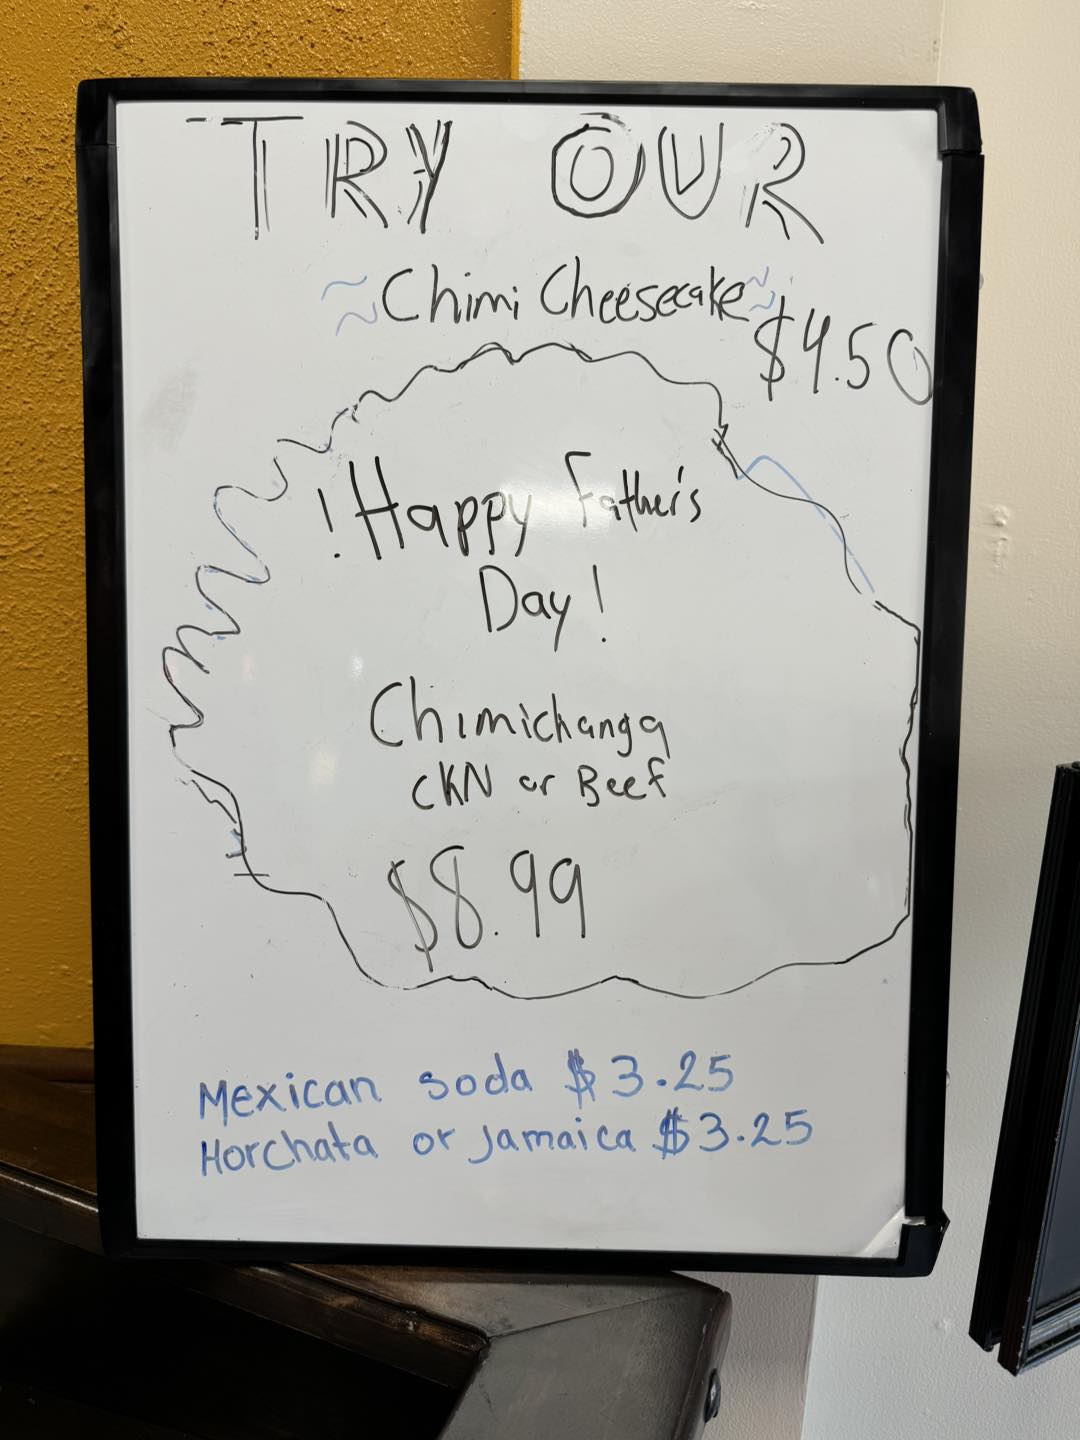 TRY OUR
~Chimi Cheesecake~
$4.50
!Happy Father's
Day!
Chimichanga
CKN or Beef
$8.99
Mexican soda $3.25
Horchata or Jamaica $3.25